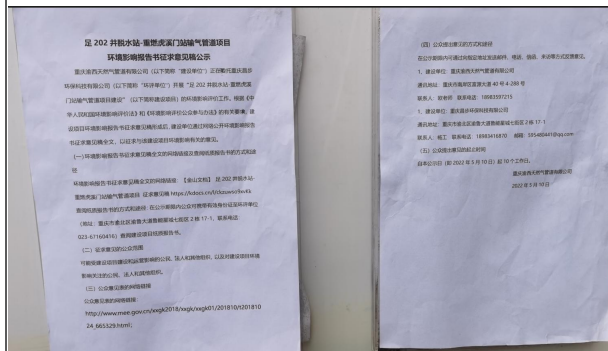 足 202 井脱水站-重燃虎溪门站输气管道项目
环境影响报告书征求意见稿公示
重庆渝西天然气管道有限公司（以下简称“建设单位”）正在委托重庆昌步
环保科技有限公司（以下简称“环评单位”）开展“足 202 井脱水站-重燃虎溪
门站输气管道项目建设”（以下简称建设项目）的环境影响评价工作。根据《中
华人民共和国环境影响评价法》和《环境影响评价公众参与办法》的有关要求，建
设项目环境影响报告书征求意见稿形成后，建设单位通过网络公开环境影响报告
书征求意见稿全文，以征求与该建设项目环境影响有关的意见。
(一)环境影响报告书征求意见稿全文的网络链接及查阅纸质报告书的方式和途
径
环境影响报告书征求意见稿全文的网络链接：【金山文档】 足 202 井脱水站-
重燃虎溪门站输气管道项目 征求意见稿
查阅纸质报告书的方式和途径：在公示期限内公众可携带有效身份证至环评单位
（地址：重庆市渝北区渝鲁大道鲁能星城七街区 2 栋 17-1，联系电话：
023-67160416）查阅建设项目纸质报告书。
（二）征求意见的公众范围
可能受建设项目建设和运营影响的公民、法人和其他组织，以及对建设项目环境
影响关注的公民、法人和其他组织。
（三）公众意见表的网络链接
公众意见表的网络链接：
http://www.mee.gov.cn/xxgk2018/xxgk/xxgk01/201810/t201810
24_665329.html；
（四）公众提出意见的方式和途径
在公示期限内可通过向指定地址发送邮件、电话、信函、来访等方式反馈意见。
1、建设单位：重庆渝西天然气管道有限公司
通讯地址：重庆市南岸区富源大道 40 号 4-288 号
联系人：欧老师 联系电话：18983597215
1、建设单位：重庆昌步环保科技有限公司
通讯地址：重庆市渝北区渝鲁大道鲁能星城七街区 2 栋 17-1
联系人：杨工 联系电话：18983416870 邮箱：595488441@qq.com
（五）公众提出意见的起止时间
自本公示日（即 2022 年 5 月 10 日）起 10 个工作日。
重庆渝西天然气管道有限公司
2022 年 5 月 10 日